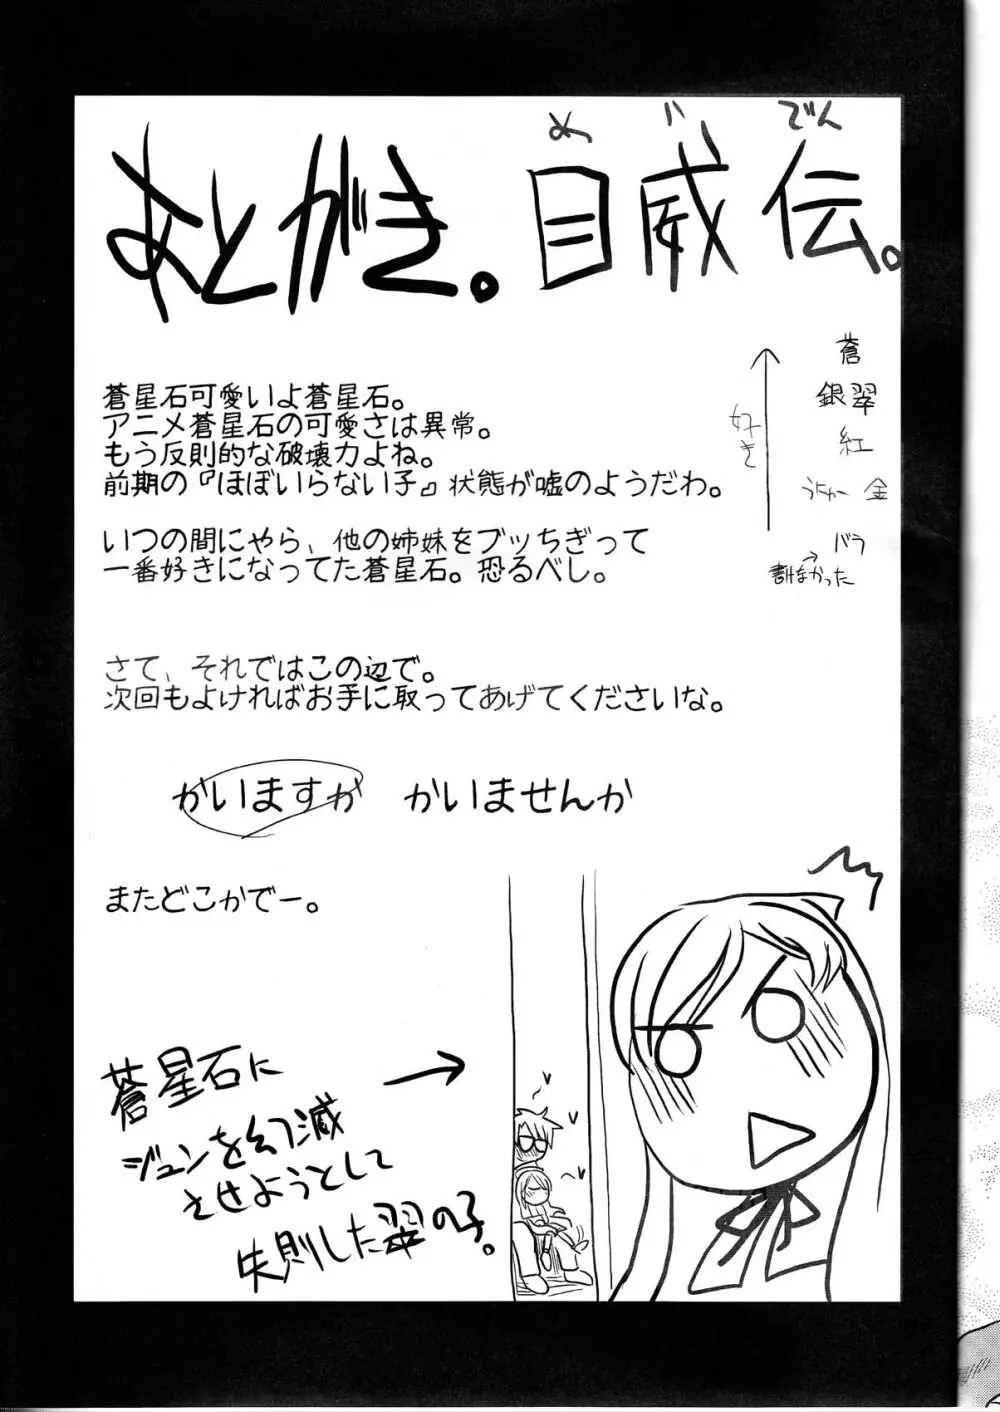 あとがき。目威伝。
めいでん
蒼星石可愛いよ蒼星石。
アニメ蒼星石の可愛さは異常。
もう反則的な破壊力よね。
前期の『ほぼいらない子』状態が嘘のようだわ。
いつの間にやら、他の姉妹をブッちぎって
一番好きになってた蒼星石。恐るべし。
好き
蒼
銀翠
紅
うにゅー 金
バラ
→
書けなかった
さて、それではこの辺で。
次回もよければお手に取ってあげてくださいな。
かいますか かいませんか
またどこかでー。
蒼星石に
ジュンを幻滅
させようとして
失則した翠の子。